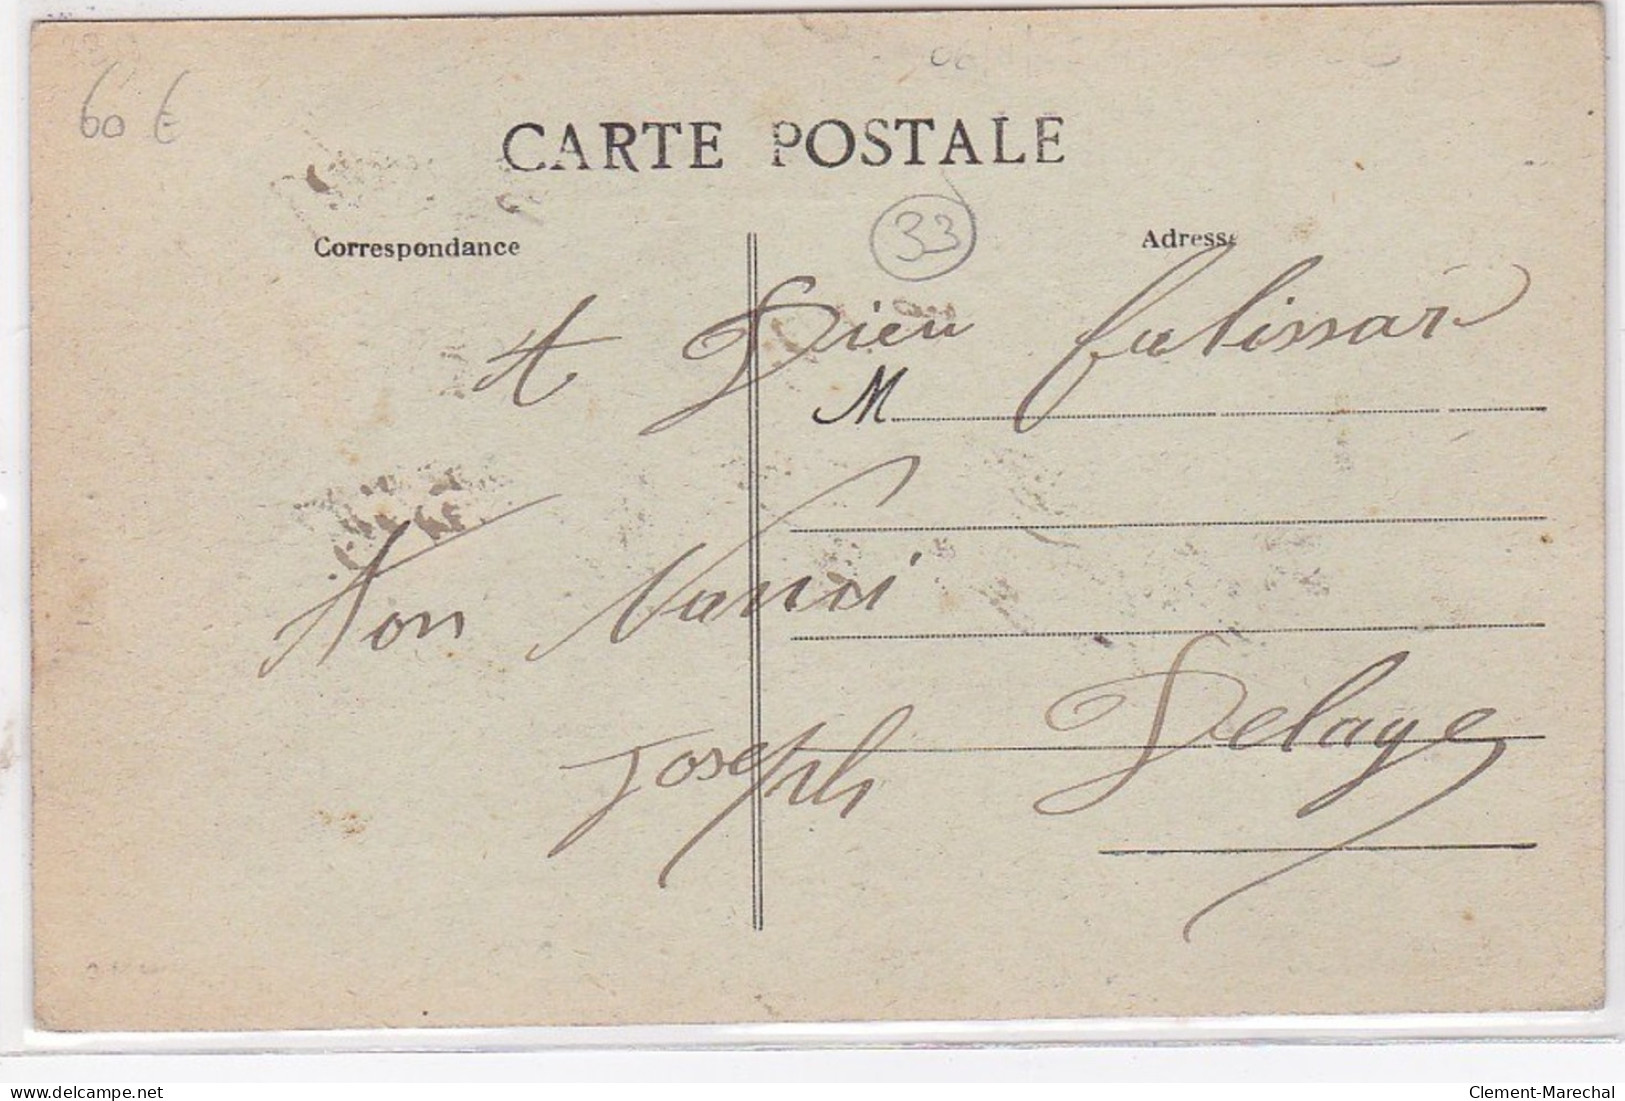 60 €
CARTE POSTALE
33
Correspondance
Adresse
A Dieu
M
Ton
Joseph Delage
delcampe.net
Clement-Marechal